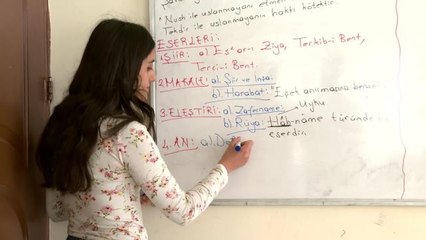 * Nush ile uslanmayanı etmeli
Tekdir ile uslanmayanın hakkı kötektir.
ESERLERİ:
1.ŞİİR: a) Eş'ar-ı Ziya, Terkib-i Bent,
Terci-i Bent.
2.MAKALE: a. Şiir ve İnşa.
b. Harabat:
3.ELEŞTİRİ: a) Zafername:
Uyku
b) Rüya: Hâb-nâme türünde
eserdir.
4.ANI: a).